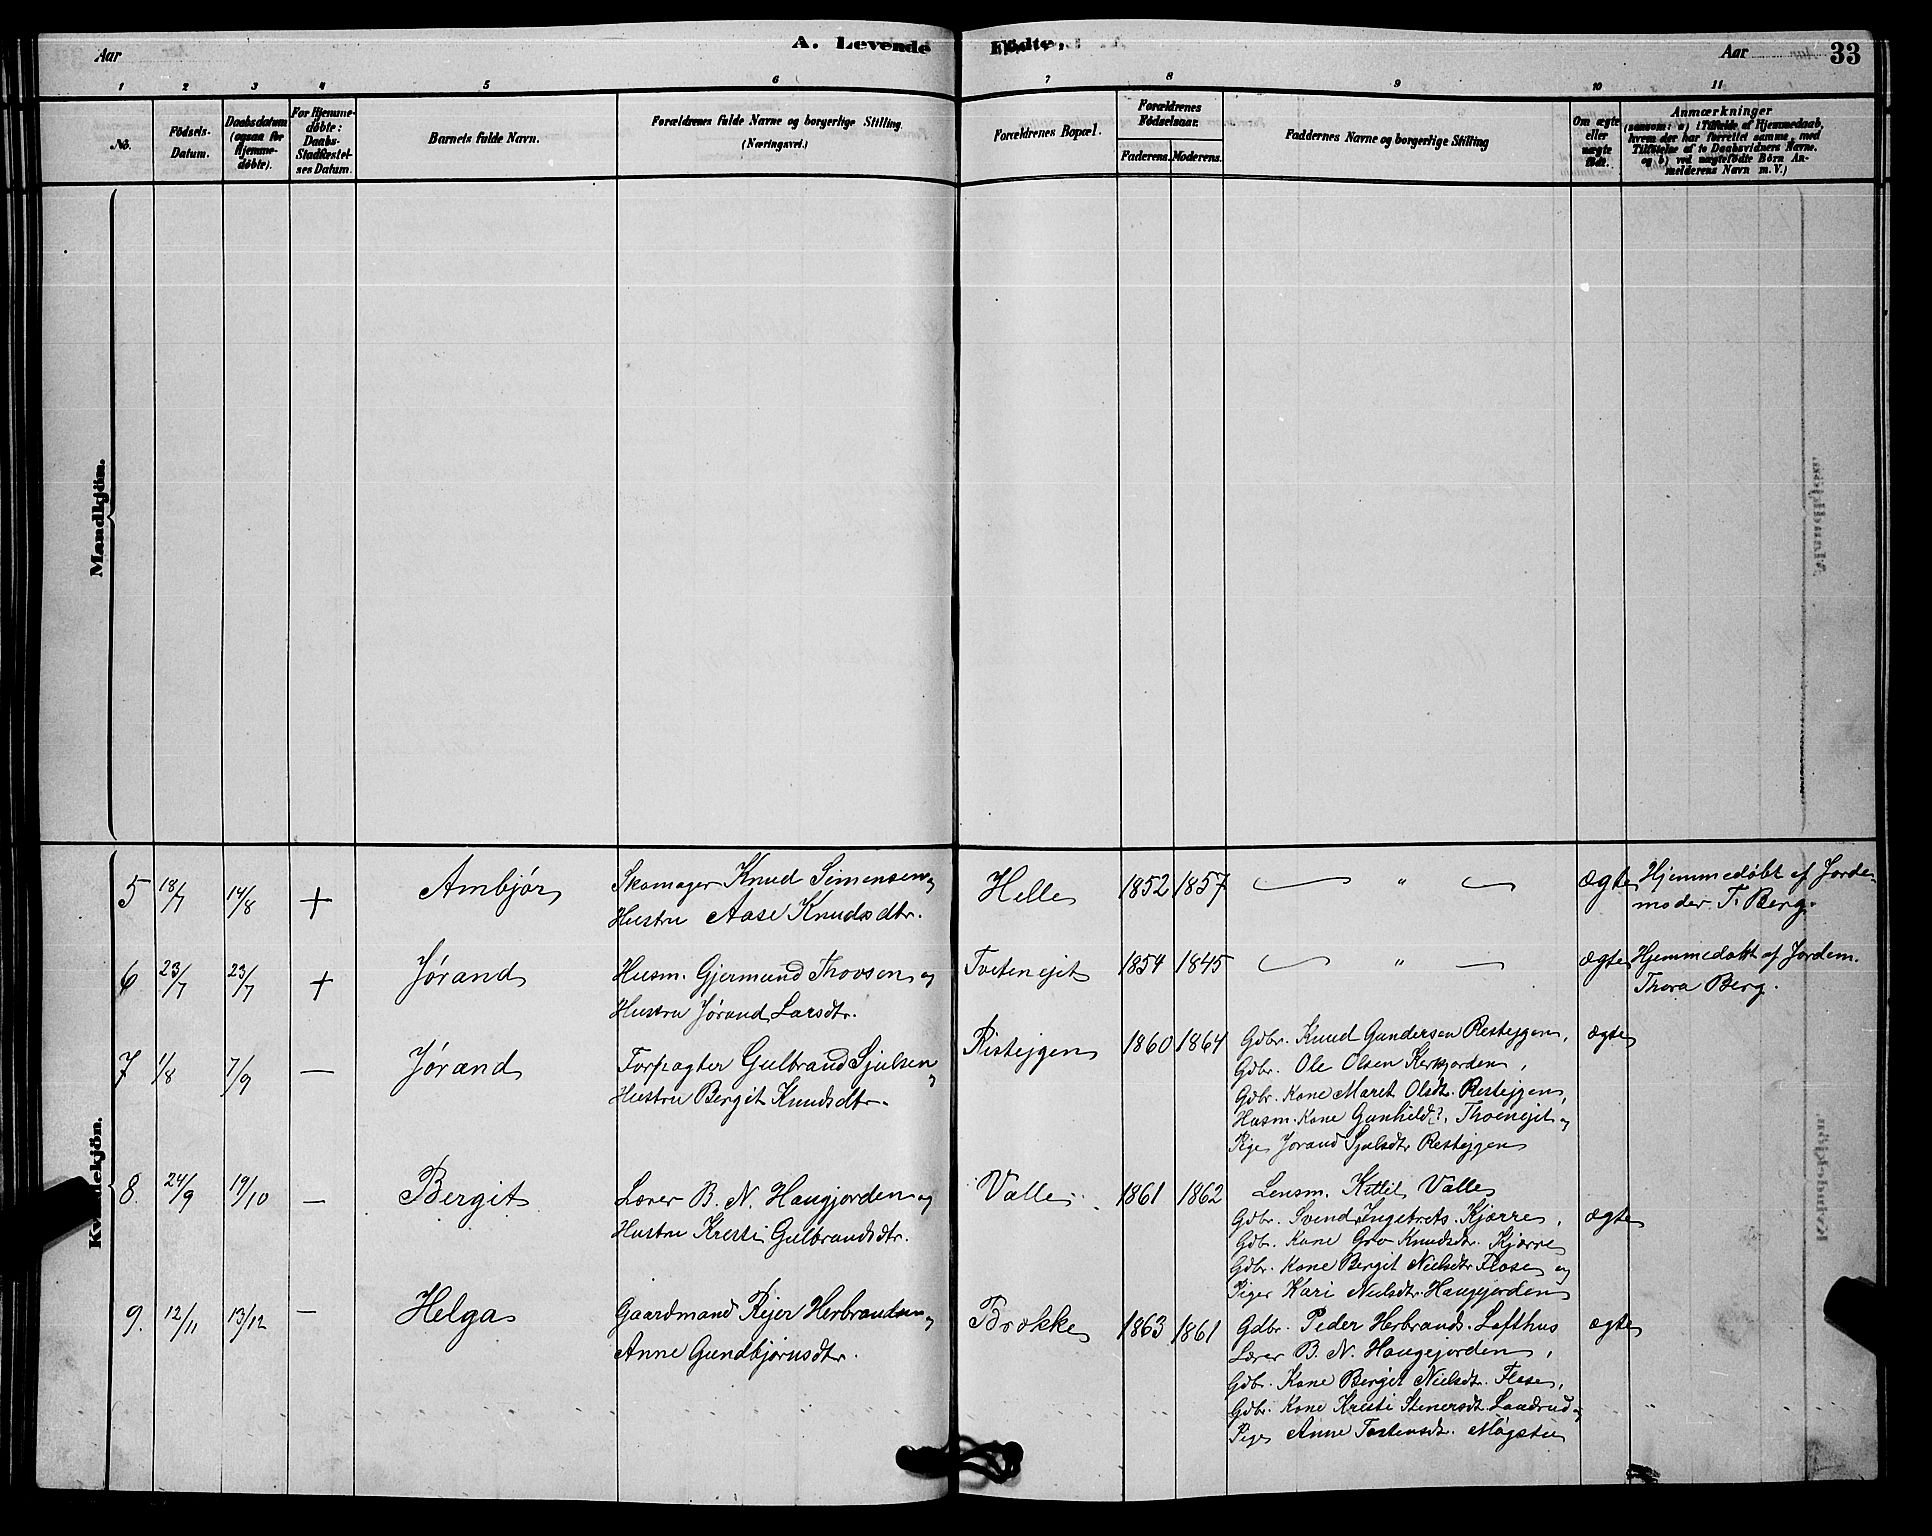 Aar
A. Levende Fødte.
Aar
33
1 2 3 4 5 6 7 8 9 10 11
No.
Fødsels-Datum.
Daabsdatum (ogsaa for Hjemmedøbte).
For Hjemmedøbte: Daabs-Stadfæstelses Datum.
Barnets fulde Navn.
Forældrenes fulde Navne og borgerlige Stilling. (Næringsvei.)
Forældrenes Bopæl.
Forældrenes Fødselsaar.
Faderens. Moderens.
Faddernes Navne og borgerlige Stilling
Om ægte eller uægte født.
Anmærkninger
(saasom: a) i Tilfælde af Hjemmedaab,
hvem der har forrettet samme, med
Tilføielse af to Daabsvidners Navne.
og b) ved uægtefødte Börn An-
melderens Navn m. V.)
Mandkjön.
Kvindekjön.
5 18/7 14/8 + Ambjør
Skomager Knud Simensen og
Hustru Aase Knudsdtr.
Helle 1852 1857 " ægte
Hjemmedøbt af Jorde-
moder T. Berg.
6 23/7 23/7 + Jørand
Husm. Gjermund Thovsen og
Hustru Jørand Larsdtr.
Tveitenejet 1854 1845 " ægte
Hjemmedøbt af Jordem.
Thora Berg.
7 1/8 7/9 — Jørand
Forpagter Gulbrand Sjulsen og
Hustru Bergit Knudsdtr.
Ristejgen 1860 1864
Gdbr. Knud Gundersen Restejgen,
Gdbr. Ole Olsen Kirkjorden,
Gdbr. Kone Maret Olsdtr. Restejgen,
Husm. Kone Gunhild ?. Thoenejet og
Pige Jorand Sjulsdtr. Restejgen
ægte
8. 24/9 19/10 — Bergit
Lærer B. N. Haugjorden og
Hustru Kristi Gulbrandsdtr.
Valle 1861 1862
Lensm. Kittil Valle
Gdbr. Svend Ingebrets. Kjørre,
Gdbr. Kone Gro Knudsdtr. Kjørre
Gdbr. Kone Bergit Nielsdtr Flose og
Piger Kari Nielsdtr. Haugejorden
ægte
9. 12/11 13/12 — Helga
Gaardmand Rejer Herbrandsen og
Anne Gundbjørnsdtr.
Brokke 1863 1861
Gdbr. Peder Herbrands. Lofthus
Lærer B. N. Haugejorden,
Gdbr. Kone Bergit Nielsdtr. Flose,
Gdbr. Kone Kristi Stenersdt. Laudrud og
Pige Anne Torstensdtr. Møgstu
ægte